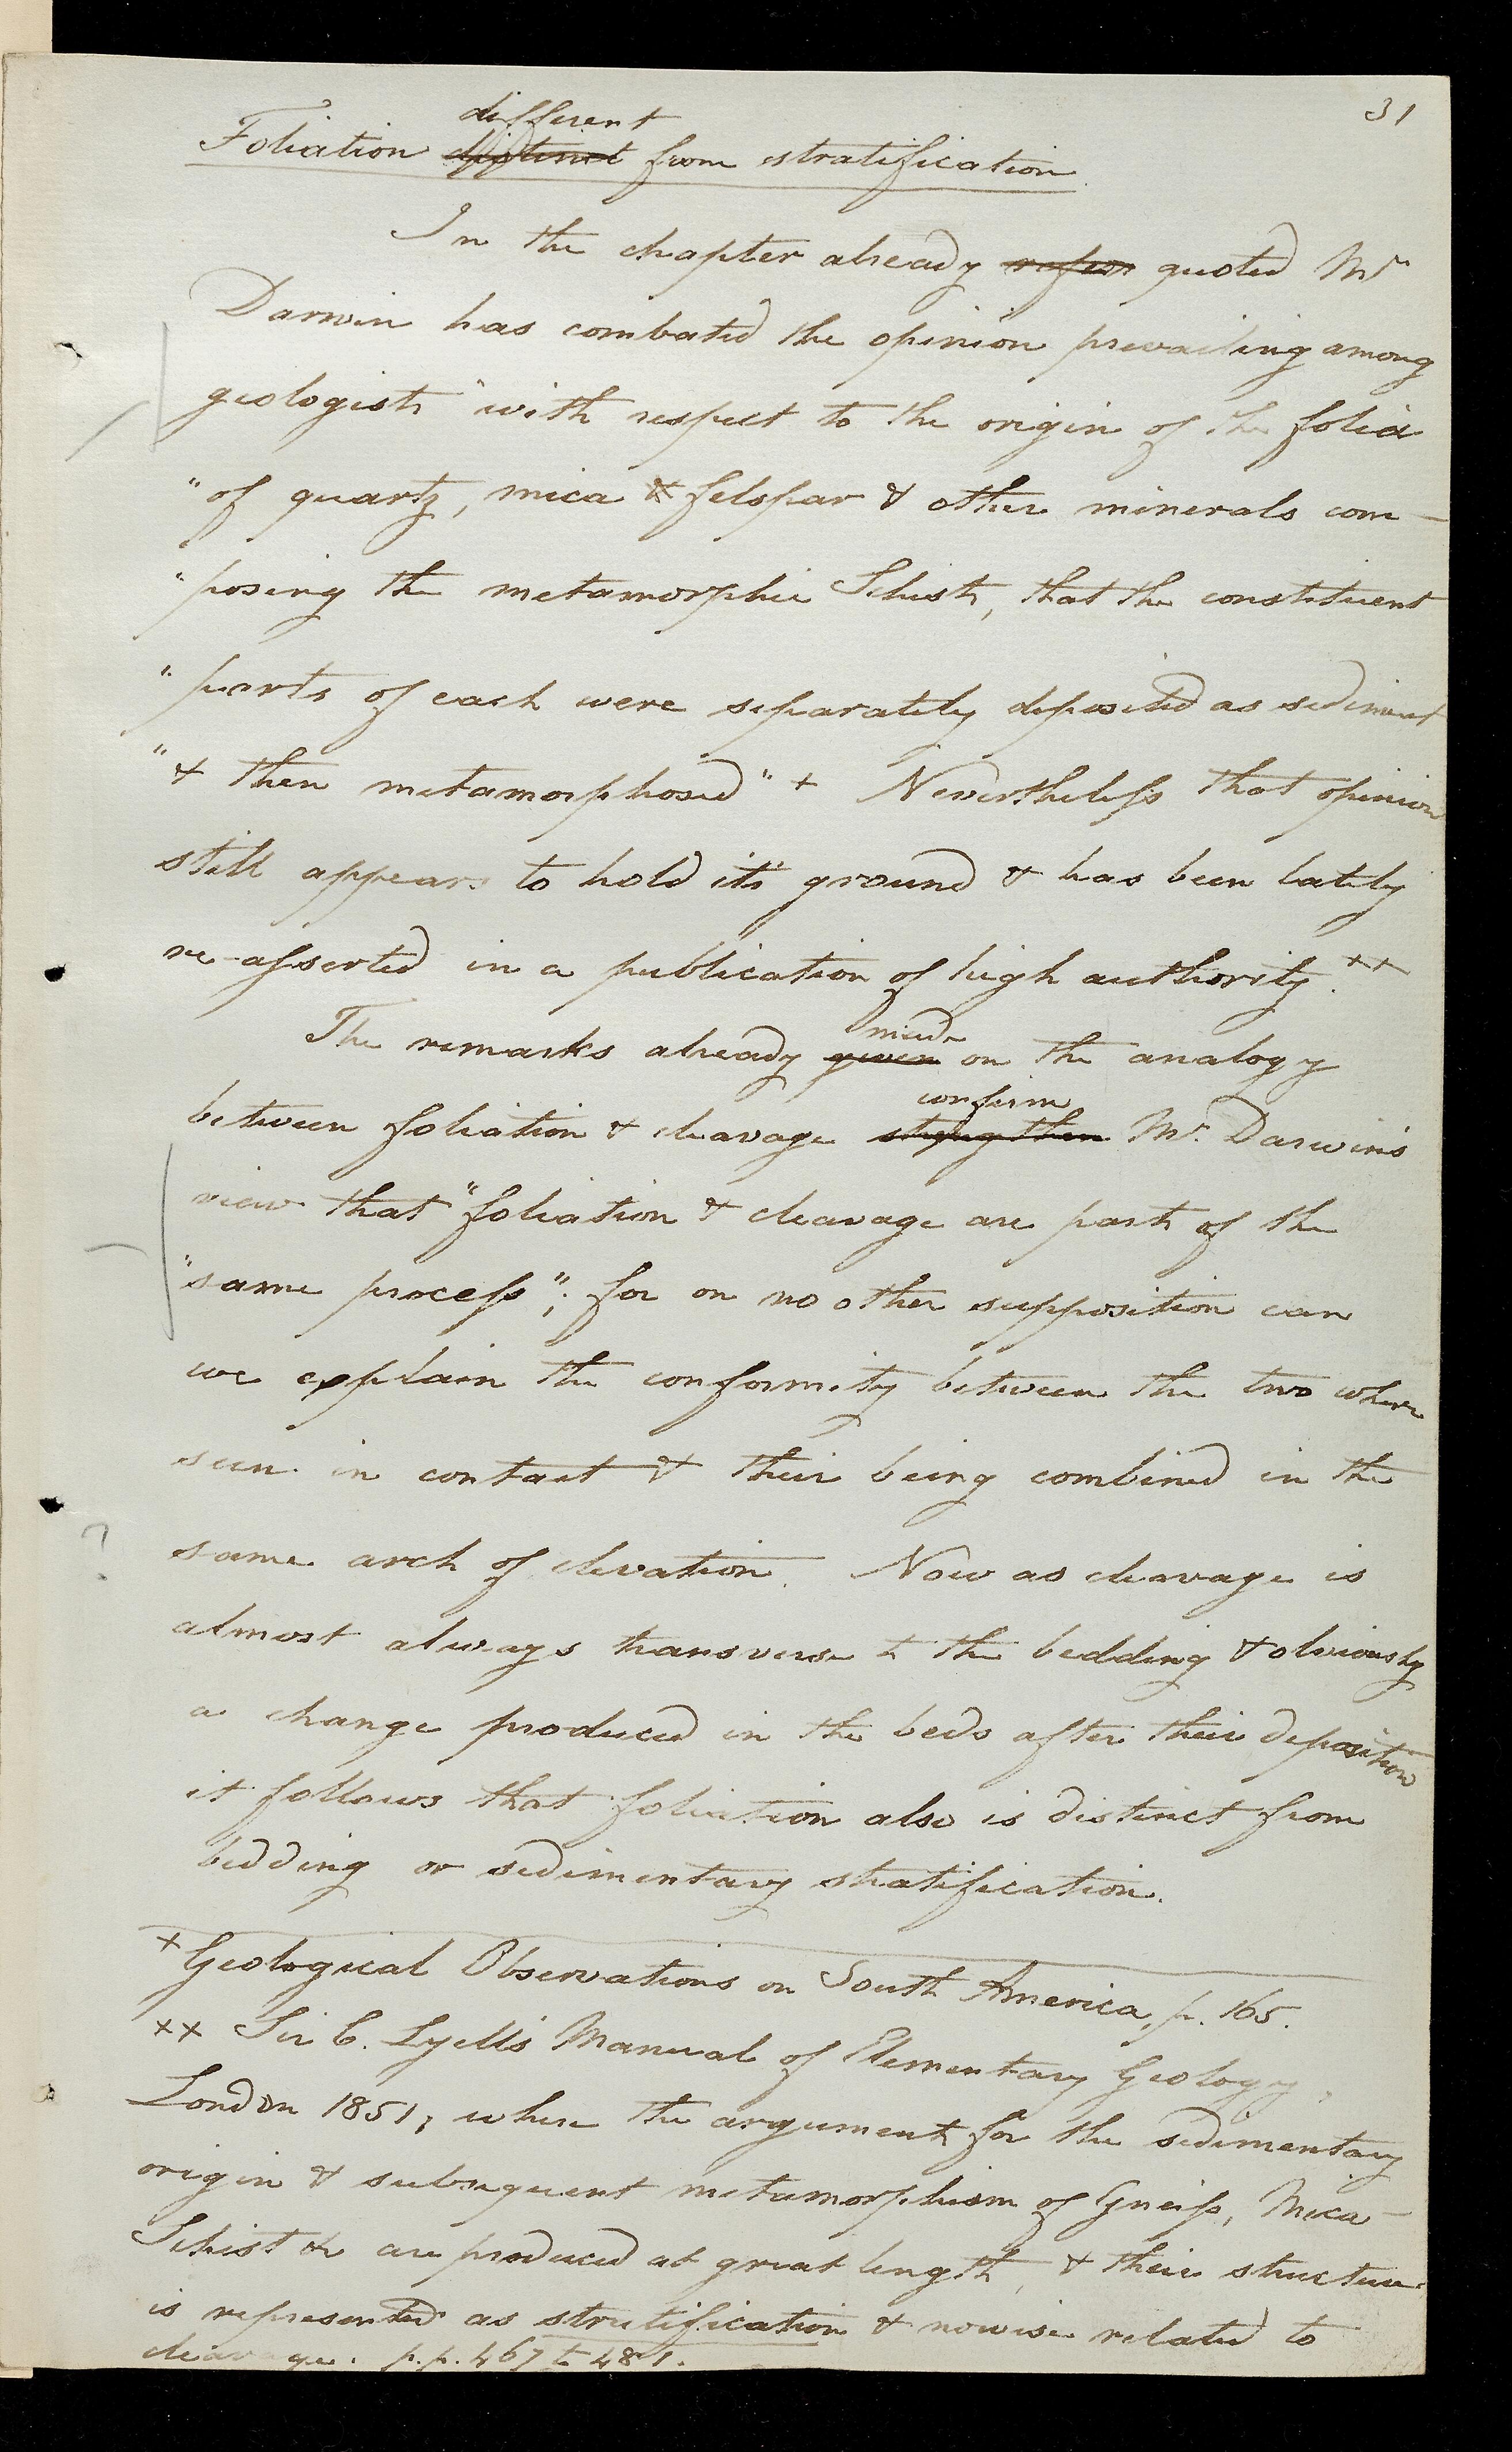 31
different
Foliation distinct from stratification
In the chapter already refer quoted Mr
Darwin has combated the opinion prevailing among
geologists "with respect to the origin of the folia
"of quartz, mica & felspar & other minerals com-
"posing the metamorphic Schists, that the constituent
"parts of each were separately deposited as sediment
"& then metamorphosed" + Nevertheless that opinion
still appears to hold its ground & has been lately
re-asserted in a publication of high authority.++
made
The remarks already given on the analogy
confirm
between foliation & cleavage strengthen Mr. Darwin's
view that "foliation & cleavage are parts of the
"same process"; for on no other supposition can
we explain the conformity between the two where
seen in contact & their being combined in the
? same arch of elevation. Now as cleavage is
almost always transverse to the bedding & obviously
a change produced in the beds after their deposition
it follows that foliation also is distinct from
bedding or sedimentary stratification.
+ Geological Observations on South America, p. 165.
++ Sir C. Lyell's Manual of Elementary Geology,
London 1851, where the arguments for the sedimentary
origin & subsequent metamorphism of Gneiss, Mica-
Schist &c are produced at great length, & their structure
is represented as stratification & nowise related to
cleavage. p.p. 467 to 481.